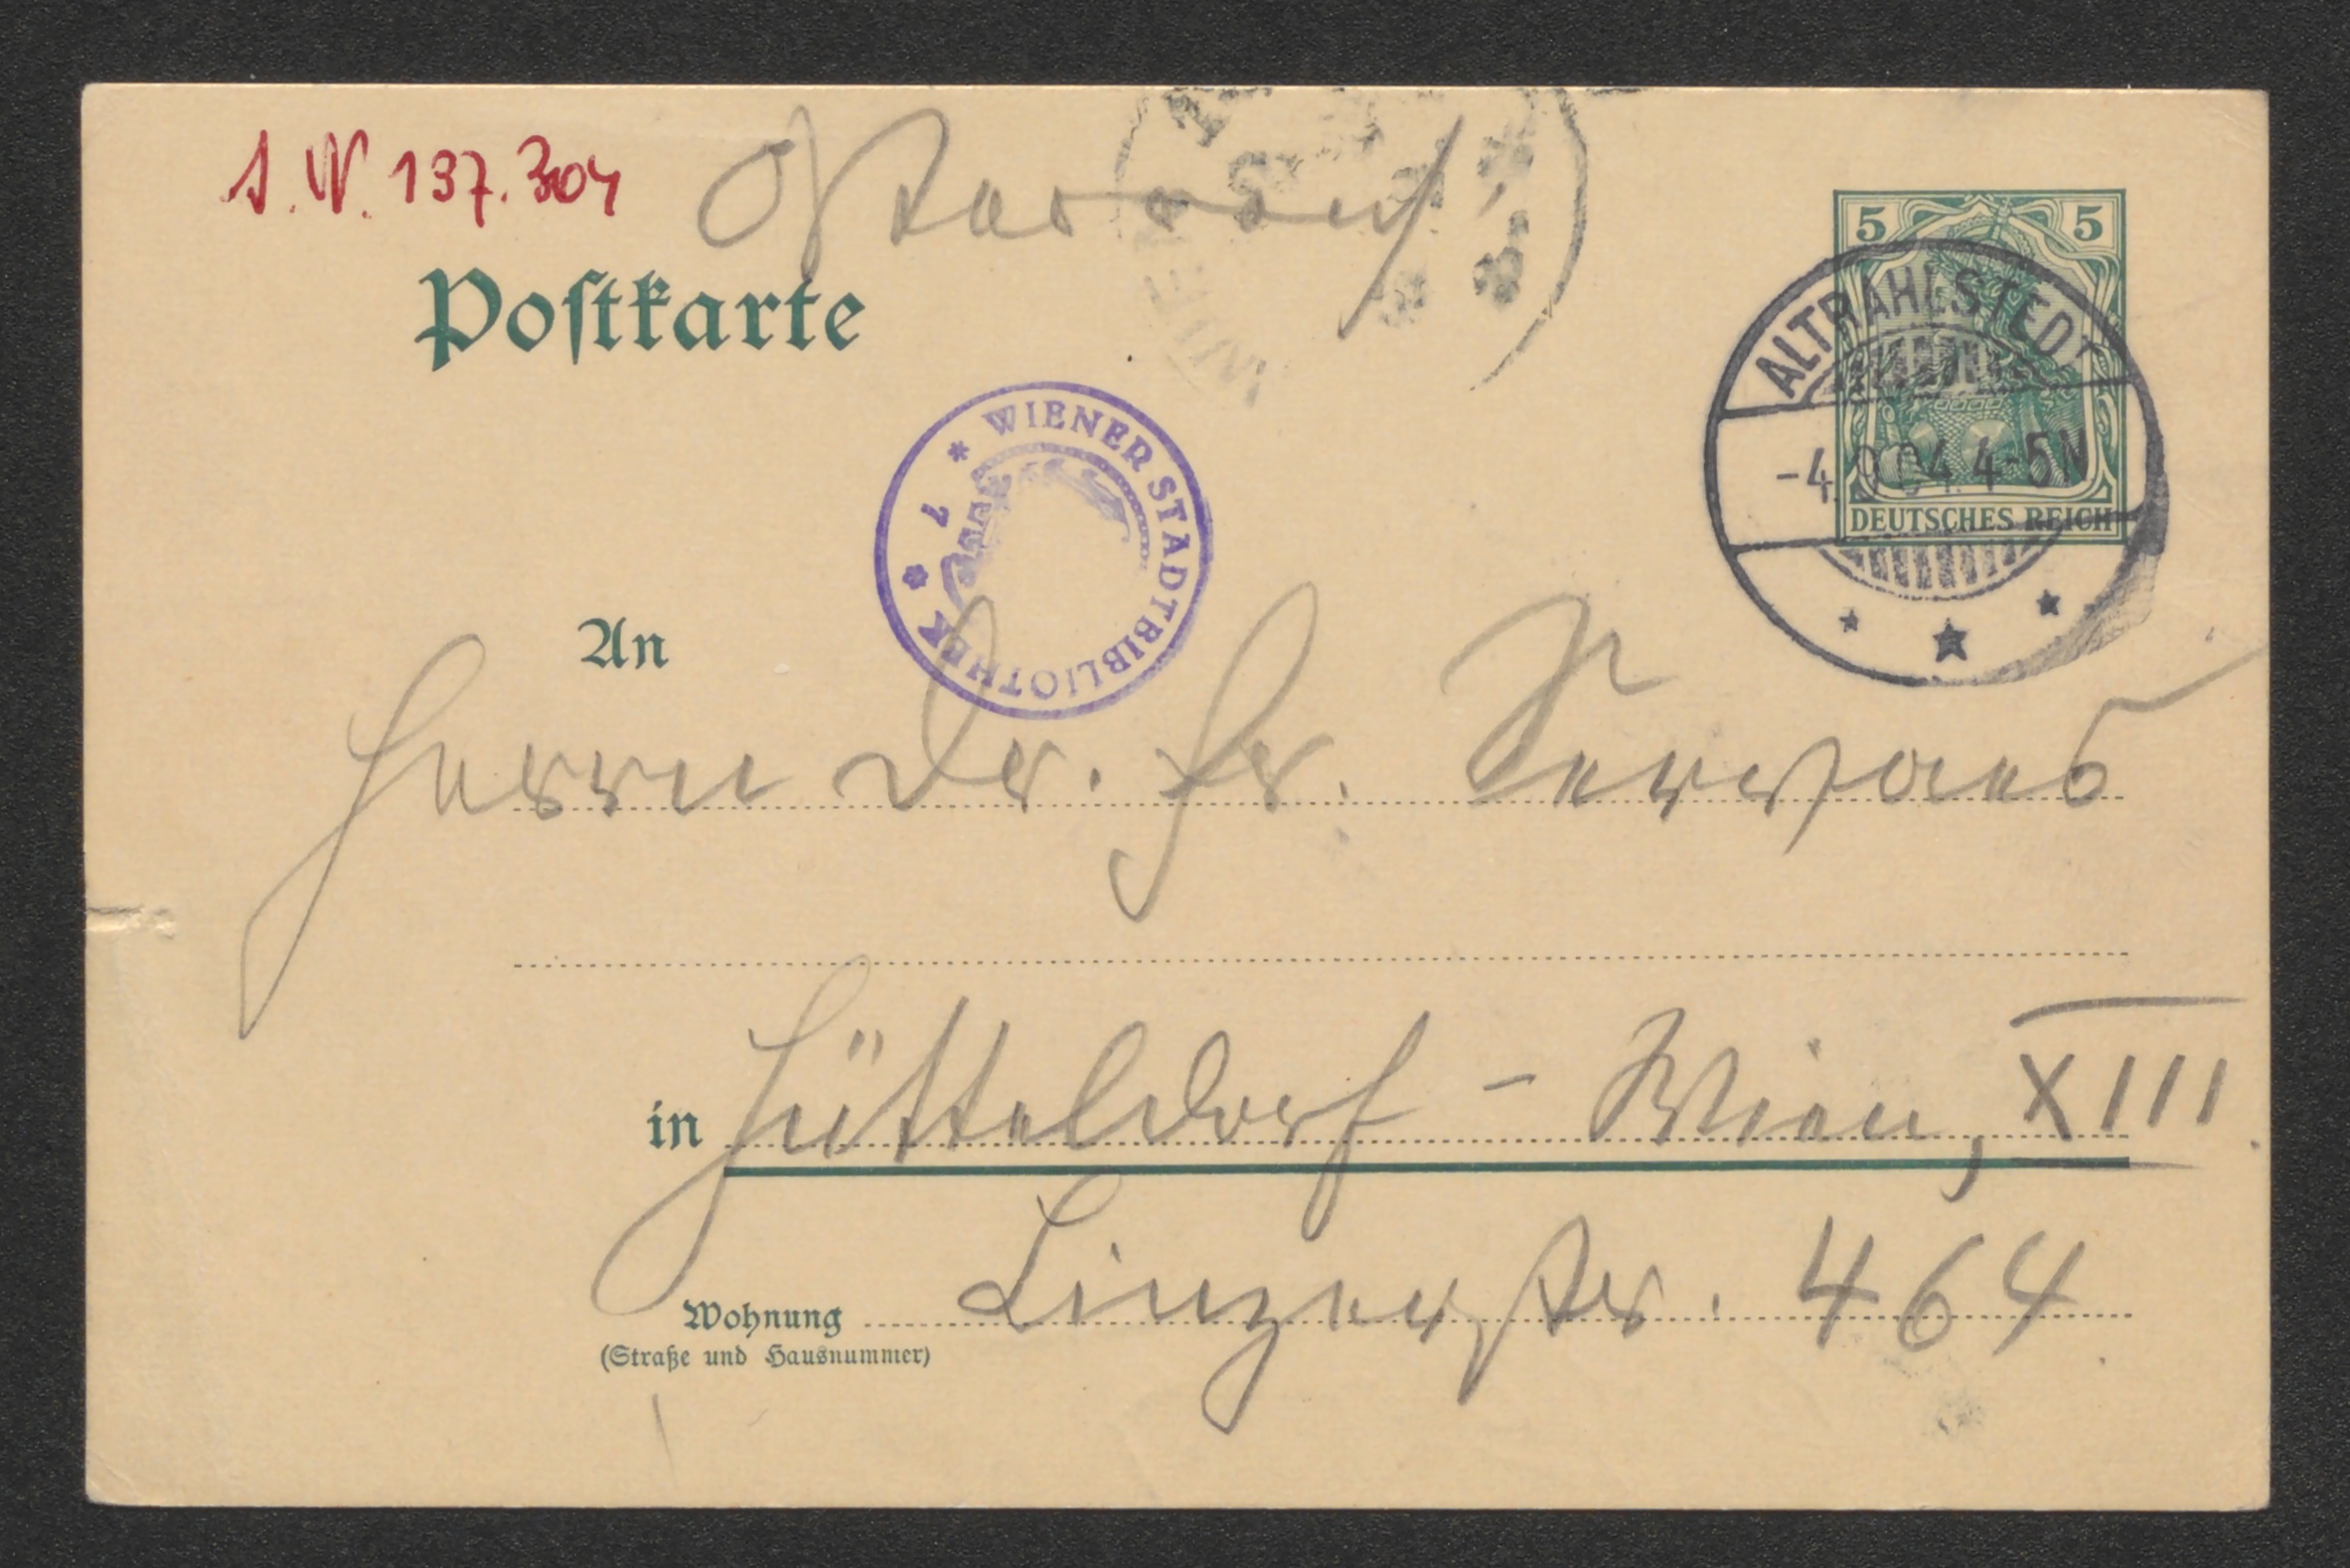 I. N. 137.304
Österreich
Postkarte
5 5
DEUTSCHES REICH
ALTRAHLSTEDT
-4.9.04.4-5N
WIEN
* WIENER STADTBIBLIOTHEK * 7
An
Herrn Dr. Fr. Servaes
in Hütteldorf - Wien, XIII.
Wohnung Linzerstr. 464
(Straße und Hausnummer)